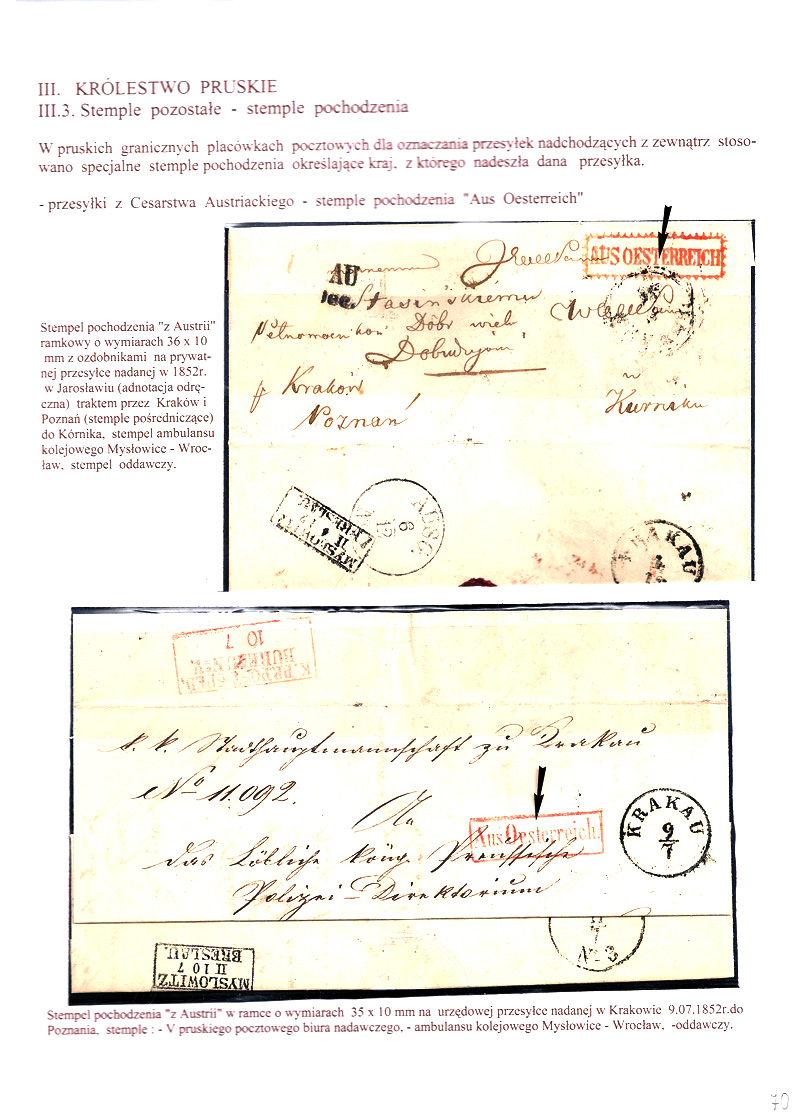 III. KRÓLESTWO PRUSKIE
III.3. Stemple pozostałe - stemple pochodzenia
W pruskich granicznych placówkach pocztowych dla oznaczania przesyłek nadchodzących z zewnątrz stoso-
wano specjalne stemple pochodzenia określające kraj, z którego nadeszła dana przesyłka.
- przesyłki z Cesarstwa Austriackiego - stemple pochodzenia "Aus Oesterreich"
AUS OESTERREICH
AU
Stempel pochodzenia "z Austrii"
ramkowy o wymiarach 36 x 10
mm z ozdobnikami na prywat-
nej przesyłce nadanej w 1852r.
w Jarosławiu (adnotacja odrę-
czna) traktem przez Kraków i
Poznań (stemple pośredniczące)
do Kórnika, stempel ambulansu
kolejowego Mysłowice - Wroc-
ław, stempel oddawczy.
Dóbr wielk
Kraków
Poznań
w
Kurniku
MYSLOWITZ
BRESLAU
AUSG.
6
12
KRAKAU
10 7
k. k. Stadthauptmannschaft zu Krakau
No 11.092.
An
Aus Oesterreich.
KRAKAU
9
7
das Löbliche köng. Preussische
Polizei-Direktorium
MYSLOWITZ
II 10 7
BRESLAU.
7
No 3
Stempel pochodzenia "z Austrii" w ramce o wymiarach 35 x 10 mm na urzędowej przesyłce nadanej w Krakowie 9.07.1852r.do
Poznania, stemple : - V pruskiego pocztowego biura nadawczego, - ambulansu kolejowego Mysłowice - Wrocław, -oddawczy.
70